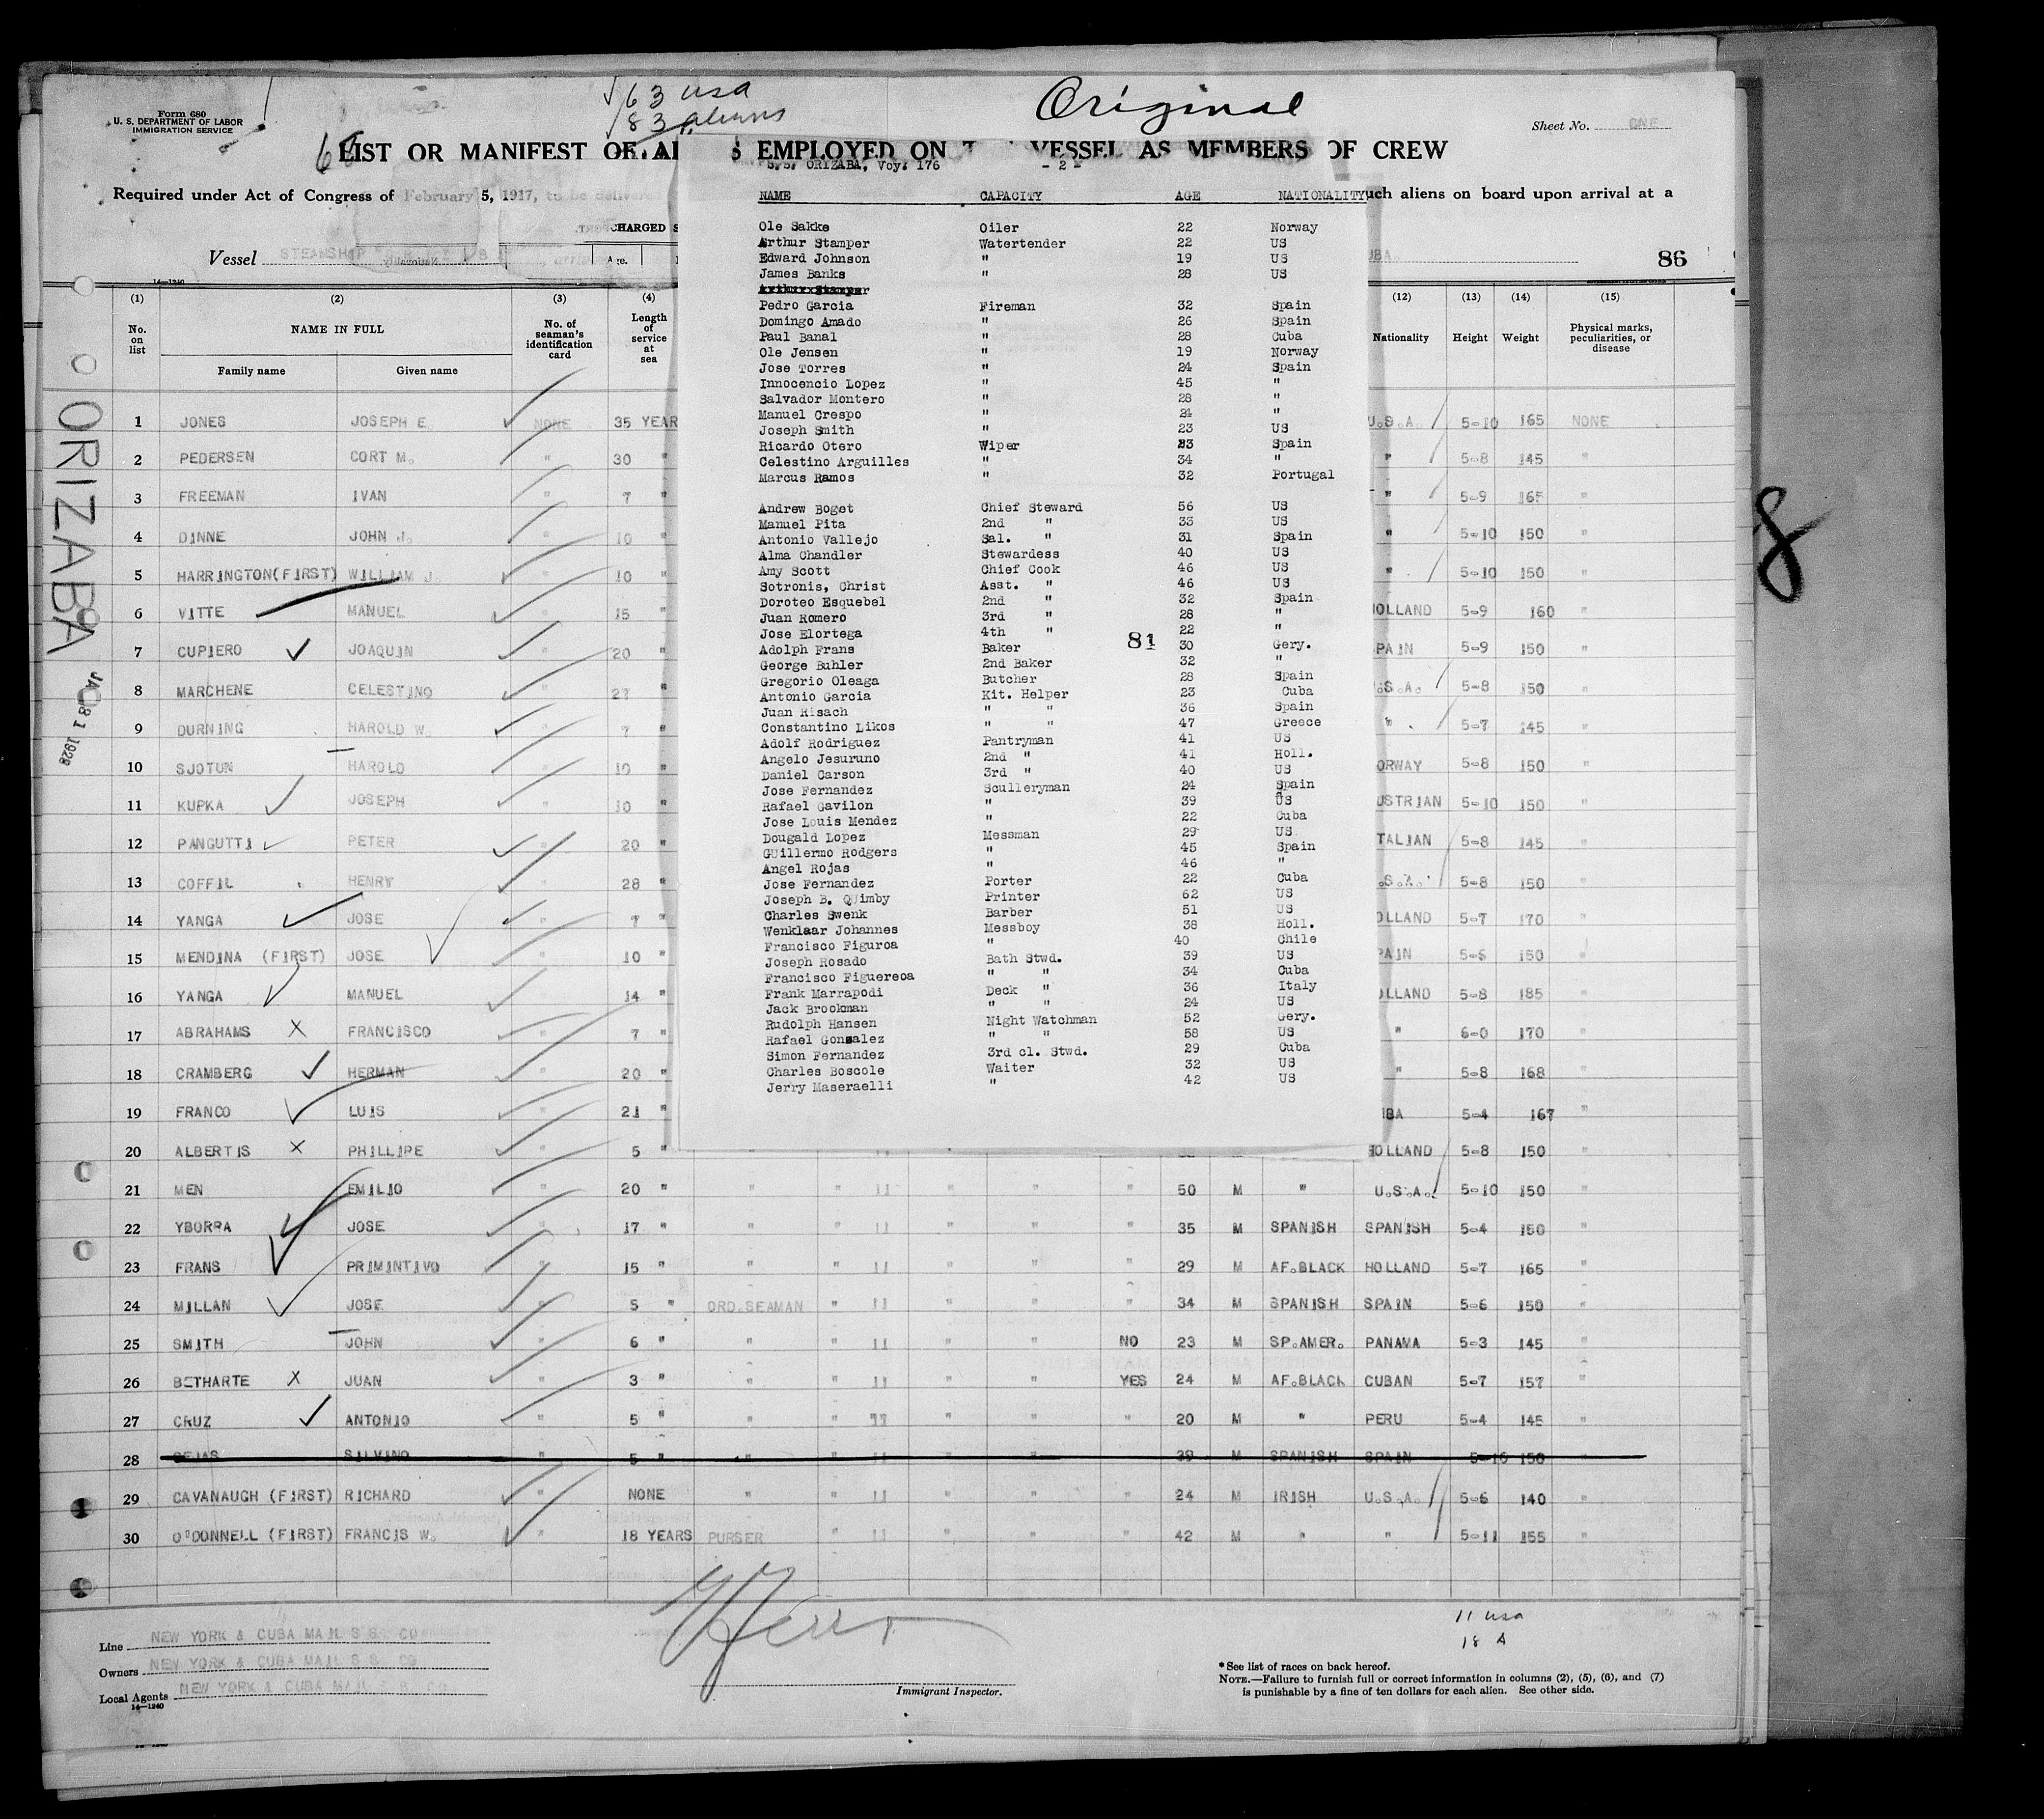 Form 680
U. S. DEPARTMENT OF LABOR
IMMIGRATION SERVICE
63 usa
83 aliens
Original
Sheet No. ONE
LIST OR MANIFEST OF AL S EMPLOYED ON T VESSEL AS MEMBERS OF CREW
Required under Act of Congress of February 5, 1917, to be delivered
uch aliens on board upon arrival at a
CHARGED S
Vessel STEAMSHIP
Age.
UBA
86
14—1240
ORIZABA
8
(1) (2) (3) (4) (12) (13) (14) (15)
No. on list NAME IN FULL No. of seaman's identification card Length of service at sea Nationality Height Weight Physical marks, peculiarities, or disease
Family name Given name
1 JONES JOSEPH E. NONE 35 YEAR U.S.A. 5-10 165 NONE
2 PEDERSEN CORT M. " 30 " " 5-8 145 "
3 FREEMAN IVAN " 7 " " 5-9 165 "
4 DINNE JOHN J. " 10 " " 5-10 150 "
5 HARRINGTON(FIRST) WILLIAM J. " 10 " " 5-10 150 "
6 VITTE MANUEL " 15 " HOLLAND 5-9 160 "
7 CUPIERO JOAQUIN " 20 " PAIN 5-9 150 "
8 MARCHENE CELESTINO " 27 " .S.A. 5-8 150 "
9 DURNING HAROLD W. " 7 " " 5-7 145 "
10 SJOTUN HAROLD " 10 " ORWAY 5-8 150 "
11 KUPKA JOSEPH " 10 " USTRIAN 5-10 150 "
12 PANGUTTI PETER " 20 " TALIAN 5-8 145 "
13 COFFIL HENRY " 28 " .S.A. 5-8 150 "
14 YANGA JOSE " 7 " OLLAND 5-7 170 "
15 MENDINA (FIRST) JOSE " 10 " PAIN 5-6 150 "
16 YANGA MANUEL " 14 " OLLAND 5-8 185 "
17 ABRAHAMS X FRANCISCO " 7 " " 6-0 170 "
18 CRAMBERG HERMAN " 20 " " 5-8 168 "
19 FRANCO LUIS " 21 " UBA 5-4 167 "
20 ALBERTIS X PHILLIPE " 5 " HOLLAND 5-8 150 "
21 MEN EMILIO " 20 " " " 11 " " " 50 M " U.S.A. 5-10 150 "
22 YBORRA JOSE " 17 " " " 11 " " " 35 M SPANISH SPANISH 5-4 150 "
23 FRANS PRIMINTIVO " 15 " " " 11 " " " 29 M AF.BLACK HOLLAND 5-7 165 "
24 MILLAN JOSE " 5 " ORD.SEAMAN " 11 " " " 34 M SPANISH SPAIN 5-6 150 "
25 SMITH JOHN " 6 " " " 11 " " NO 23 M SP.AMER. PANAMA 5-3 145 "
26 BETHARTE X JUAN " 3 " " " 11 " " YES 24 M AF.BLACK CUBAN 5-7 157 "
27 CRUZ ANTONIO " 5 " " " 11 " " " 20 M " PERU 5-4 145 "
28 SEJAS SILVINO " 5 " " " 11 " " " 39 M SPANISH SPAIN 5-10 150 "
29 CAVANAUGH (FIRST) RICHARD " NONE " " 11 " " " 24 M IRISH U.S.A. 5-6 140 "
30 O'DONNELL (FIRST) FRANCIS W. " 18 YEARS PURSER " 11 " " " 42 M " " 5-11 155 "
S.S. ORIZABA, Voy. 176 - 2 -
NAME CAPACITY AGE NATIONALITY
Ole Sakke Oiler 22 Norway
Arthur Stamper Watertender 22 US
Edward Johnson " 19 US
James Banks " 28 US
Arthur Stamper
Pedro Garcia Fireman 32 Spain
Domingo Amado " 26 Spain
Paul Banal " 28 Cuba
Ole Jensen " 19 Norway
Jose Torres " 24 Spain
Innocencio Lopez " 45 "
Salvador Montero " 28 "
Manuel Crespo " 24 "
Joseph Smith " 23 US
Ricardo Otero Wiper 23 Spain
Celestino Arguilles " 34 "
Marcus Ramos " 32 Portugal
Andrew Boget Chief Steward 56 US
Manuel Pita 2nd " 33 US
Antonio Vallejo Sal. " 31 Spain
Alma Chandler Stewardess 40 US
Amy Scott Chief Cook 46 US
Sotronis, Christ Asst. " 46 US
Doroteo Esquebel 2nd " 32 Spain
Juan Romero 3rd " 28 "
Jose Elortega 4th " 22 "
81
Adolph Frans Baker 30 Gery.
George Buhler 2nd Baker 32 "
Gregorio Oleaga Butcher 28 Spain
Antonio Garcia Kit. Helper 23 Cuba
Juan Risach " " 36 Spain
Constantino Likos " " 47 Greece
Adolf Rodriguez Pantryman 41 US
Angelo Jesuruno 2nd " 41 Holl.
Daniel Carson 3rd " 40 US
Jose Fernandez Sculleryman 24 Spain
Rafael Gavilon " 39 US
Jose Louis Mendez " 22 Cuba
Dougald Lopez Messman 29 US
GUillermo Rodgers " 45 Spain
Angel Rojas " 46 "
Jose Fernandez Porter 22 Cuba
Joseph B. QUimby Printer 62 US
Charles Swenk Barber 51 US
Wenklaar Johannes Messboy 38 Holl.
Francisco Figuroa " 40 Chile
Joseph Rosado Bath Stwd. 39 US
Francisco Figuereoa " " 34 Cuba
Frank Marrapodi Deck " 36 Italy
Jack Brookman " " 24 US
Rudolph Hansen Night Watchman 52 Gery.
Rafael Gonsalez " " 58 US
Simon Fernandez 3rd cl. Stwd. 29 Cuba
Charles Boscole Waiter 32 US
Jerry Maseraelli " 42 US
11 usa
18 A
Line NEW YORK & CUBA MAIL S S. CO
Owners NEW YORK & CUBA MAIL S S. CO
Local Agents NEW YORK & CUBA MAIL S S. CO
14—1240
Immigrant Inspector.
*See list of races on back hereof.
NOTE.—Failure to furnish full or correct information in columns (2), (5), (6), and (7)
is punishable by a fine of ten dollars for each alien. See other side.